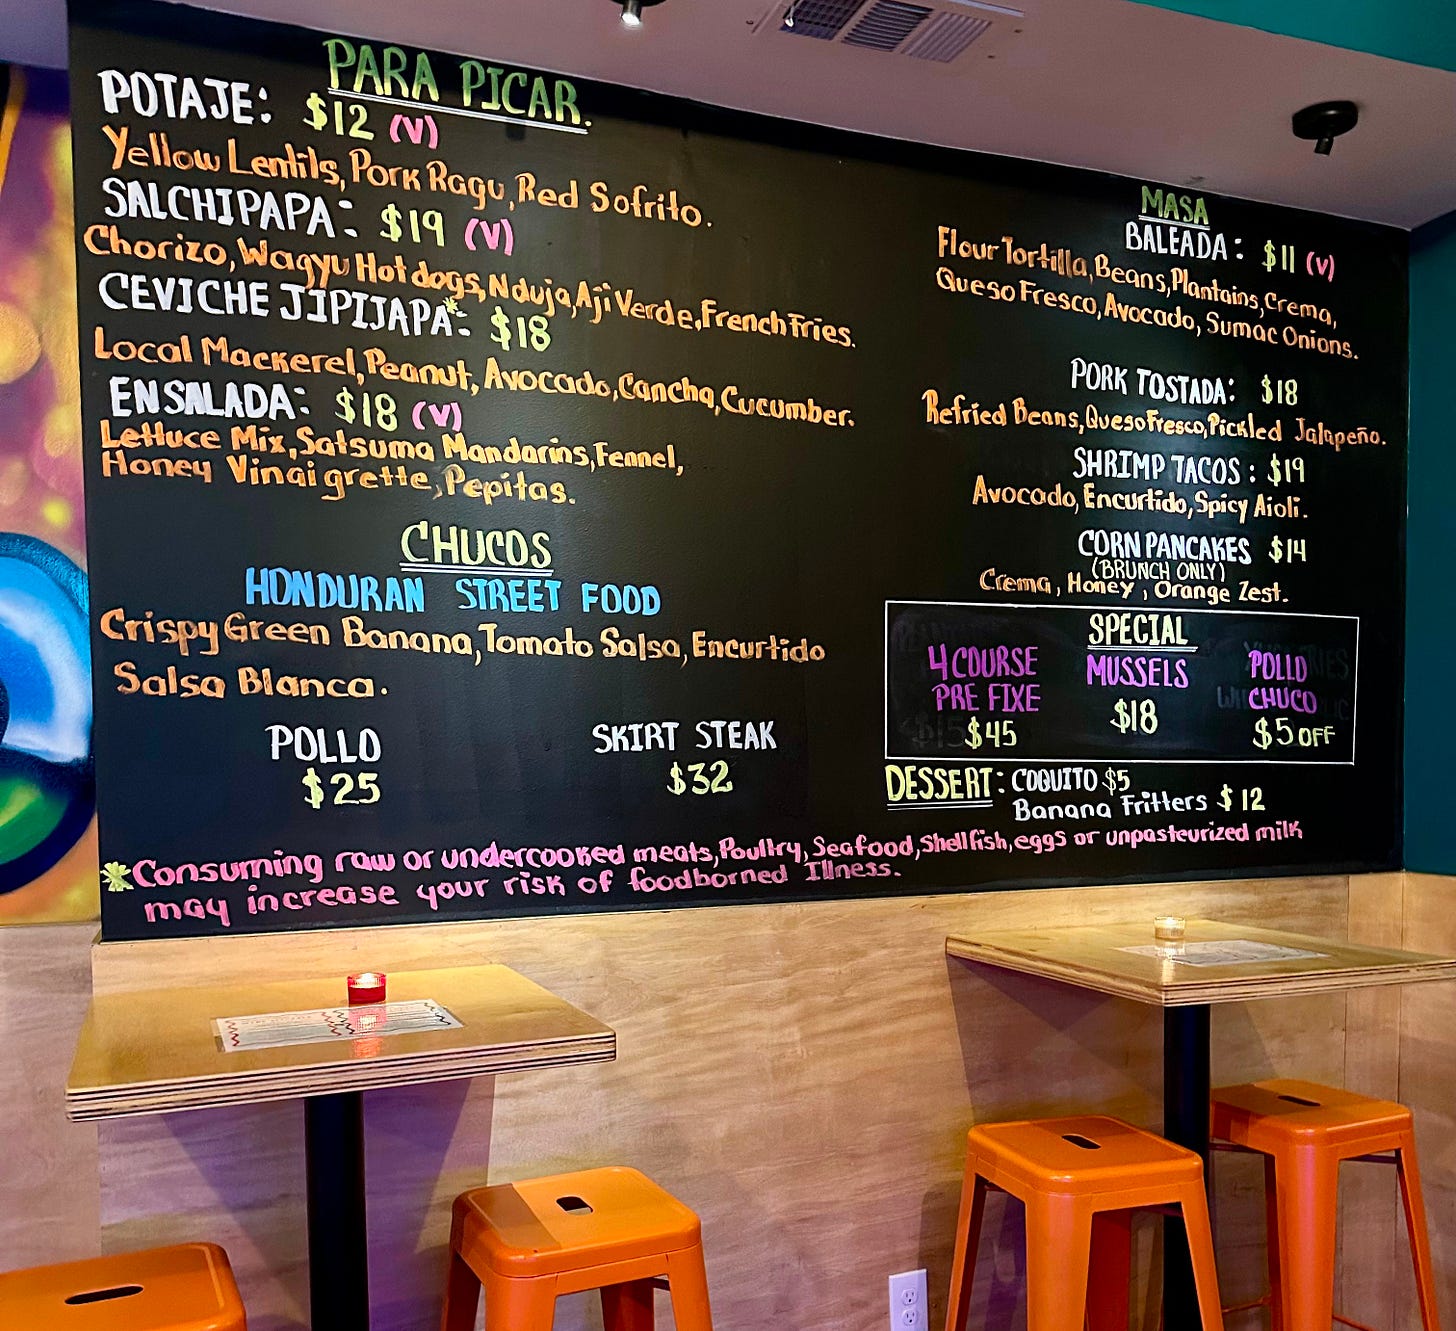 PARA PICAR.
POTAJE: $12 (V)
Yellow Lentils, Pork Ragu, Red Sofrito.
SALCHIPAPA: $19 (V)
Chorizo, Wagyu Hot dogs, Nduja, Aji Verde, French Fries.
CEVICHE JIPIJAPA*: $18
Local Mackerel, Peanut, Avocado, Cancha, Cucumber.
ENSALADA: $18 (V)
Lettuce Mix, Satsuma Mandarins, Fennel,
Honey Vinaigrette, Pepitas.
CHUCOS
HONDURAN STREET FOOD
Crispy Green Banana, Tomato Salsa, Encurtido
Salsa Blanca.
POLLO
$25
SKIRT STEAK
$32
MASA
BALEADA: $11 (V)
Flour Tortilla, Beans, Plantains, Crema,
Queso Fresco, Avocado, Sumac Onions.
PORK TOSTADA: $18
Refried Beans, Queso Fresco, Pickled Jalapeño.
SHRIMP TACOS: $19
Avocado, Encurtido, Spicy Aioli.
CORN PANCAKES $14
(BRUNCH ONLY)
Crema, Honey, Orange Zest.
SPECIAL
4 COURSE
PRE FIXE
$45
MUSSELS
$18
POLLO
CHUCO
$5 OFF
DESSERT: COQUITO $5
Banana Fritters $12
*Consuming raw or undercooked meats, Poultry, Seafood, Shellfish, eggs or unpasteurized milk
may increase your risk of foodborned Illness.